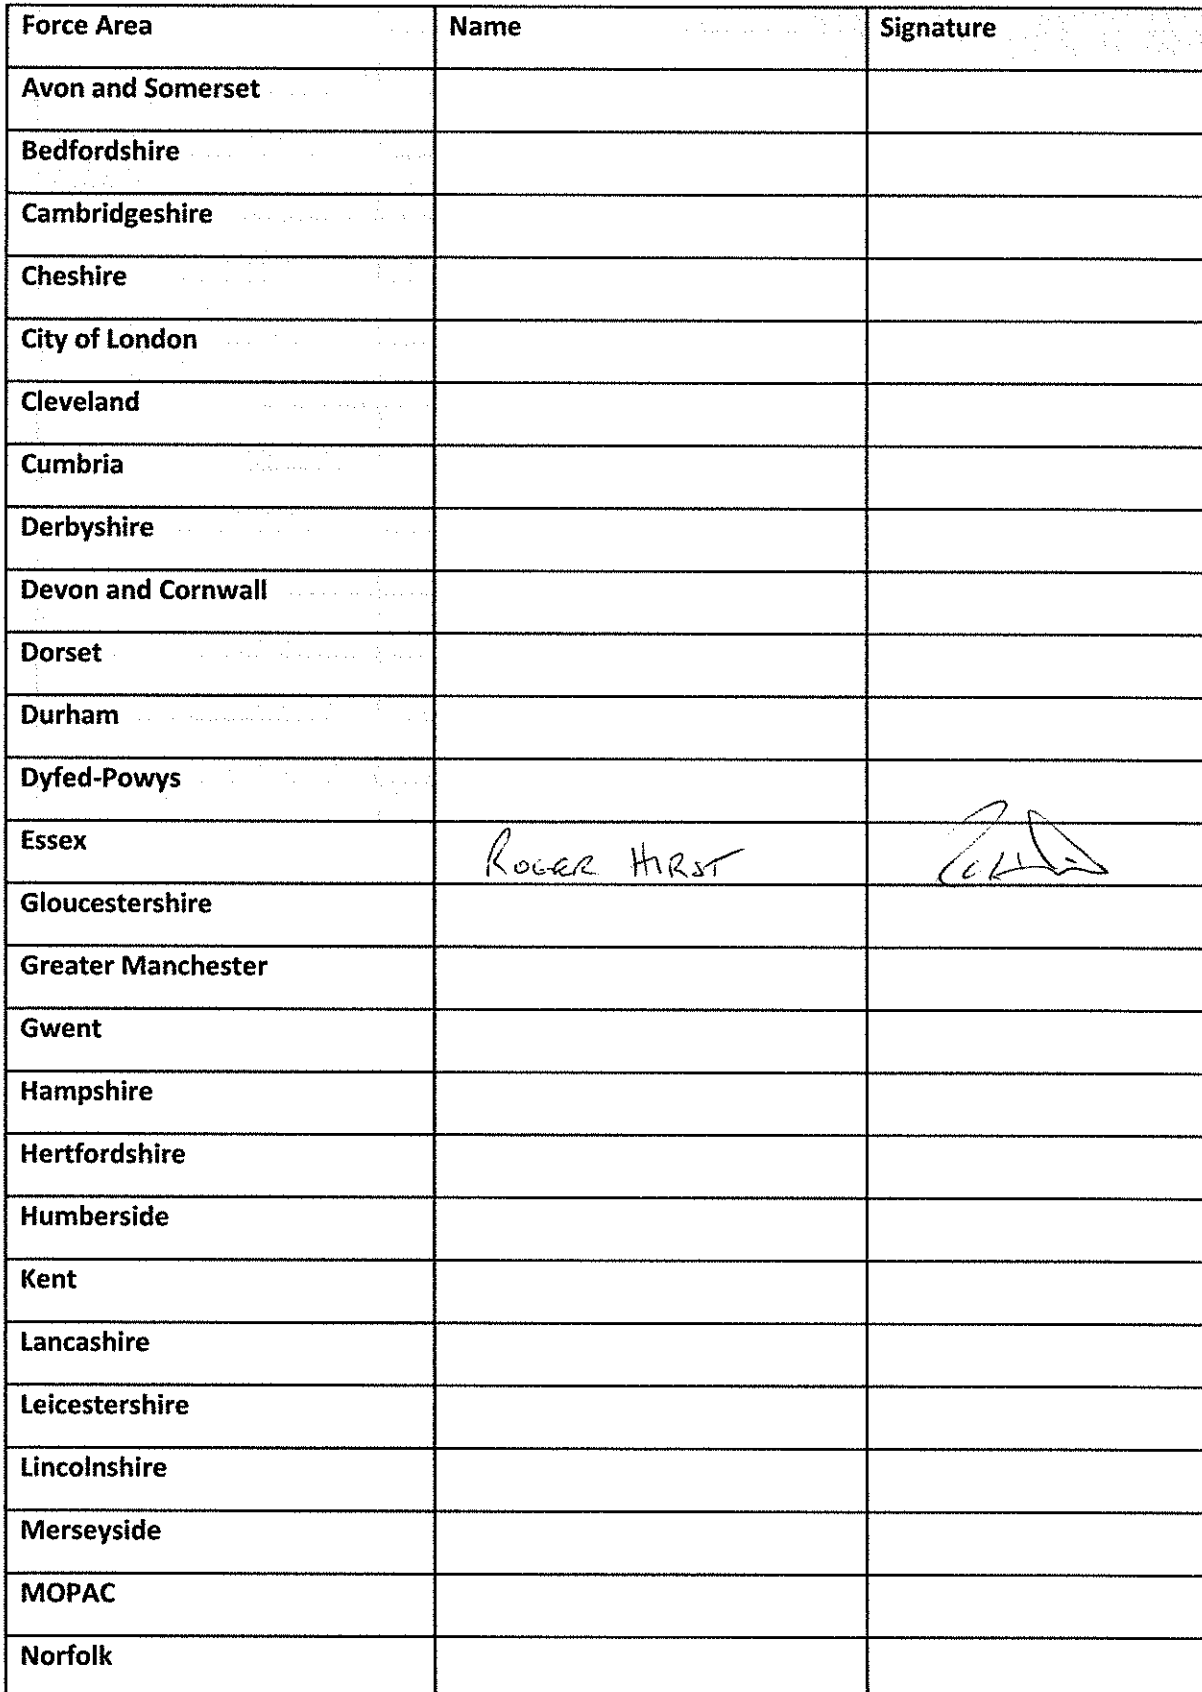 Force Area Name Signature
Avon and Somerset
Bedfordshire
Cambridgeshire
Cheshire
City of London
Cleveland
Cumbria
Derbyshire
Devon and Cornwall
Dorset
Durham
Dyfed-Powys
Essex ROGER HIRST
Gloucestershire
Greater Manchester
Gwent
Hampshire
Hertfordshire
Humberside
Kent
Lancashire
Leicestershire
Lincolnshire
Merseyside
MOPAC
Norfolk